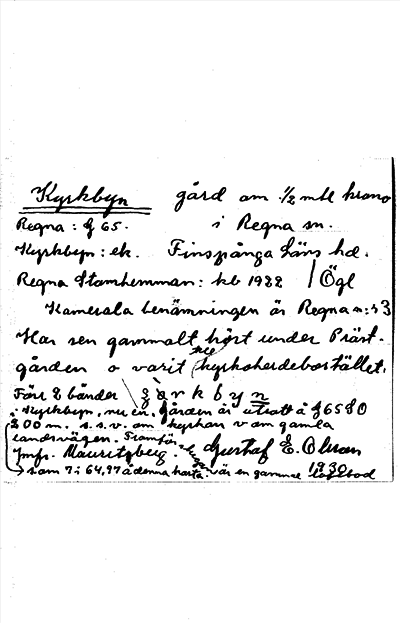 Kyrkbyn gård om 1/2 mtl krono
Regna: J 65. i Regna sn.
Kyrkbyn: ek. Finspånga Läns hd.
Regna Stamhemman: kb 1922 Ögl
Kamerala benämningen är Regna n:r 3
Har sen gammalt hört under Präst-
gården o varit kyrkoherdebostället.
Förr 2 bönder
i Kyrkbyn, nu en. Gården är utsatt å J 65 80
200 m. s.s.v. om kyrkan v om gamla
landsvägen. Framför
Jmfr. Mauritzberg. Gustaf E. Olsson
som 7 i 64,97 å denna karta. var en gammal 1930